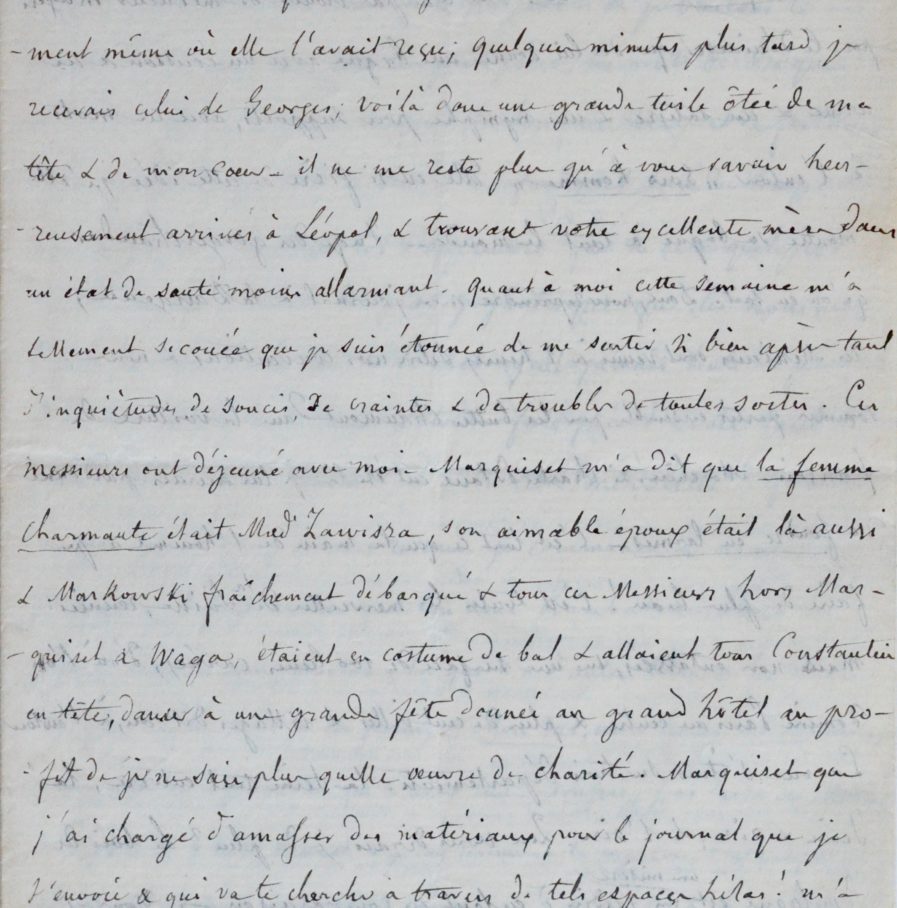 -ment même où elle l'avait reçu; quelques minutes plus tard je
recevais celui de Georges; voilà donc une grande tuile ôtée de ma
tête & de mon cœur - il ne me reste plus qu'à vous savoir heu-
-reusement arrivés à Léopol, & trouvant votre excellente mère dans
un état de santé moins allarmant. Quant à moi cette semaine m'a
tellement secouée que je suis étonnée de me sentir si bien après tant
d'inquiétudes de soucis, de craintes & de troubles de toutes sortes. Ces
messieurs ont déjeuné avec moi - Marquiset m'a dit que la femme
charmante était Mad. Zawisza, son aimable époux était là aussi
& Markowski fraîchement débarqué & tous ces Messieurs hors Mar-
-quiset & Waga, étaient en costume de bal & allaient tous Constantin
en tête, danser à une grande fête donnée au grand hôtel au pro-
-fit de je ne sais plus quelle œuvre de charité. Marquiset que
j'ai chargé d'amasser des matériaux pour le journal que je
t'envoie & qui va te chercher à travers de tels espaces hélas! m'a